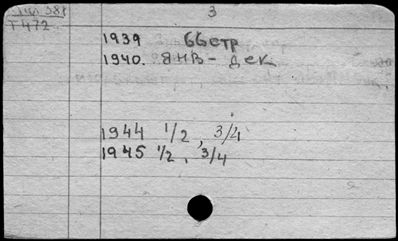 3
Т472
1939 66стр
1940. янв - дек
1944 1/2, 3/4
1945 1/2, 3/4